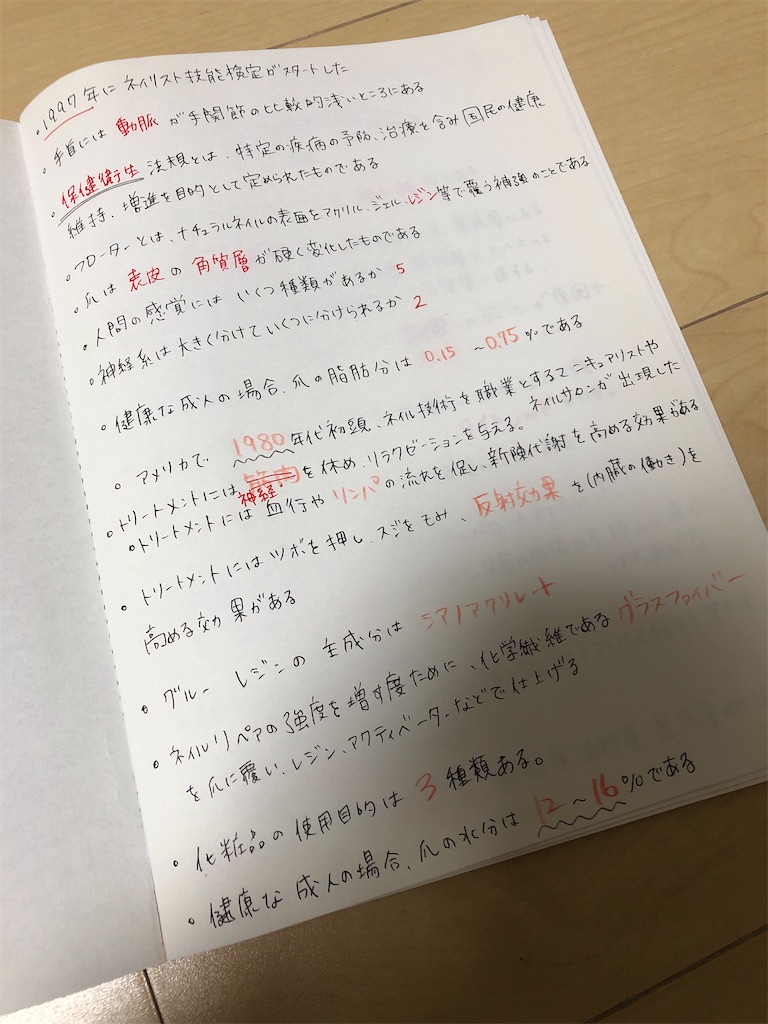 ・1997年にネイリスト技能検定がスタートした
・手首には動脈が手関節の比較的浅いところにある
・保健衛生法規とは、特定の疾病の予防、治療を含み国民の健康
維持、増進を目的として定められたものである
・フローターとは、ナチュラルネイルの表面をアクリル、ジェル、レジン等で覆う補強のことである
・爪は表皮の角質層が硬く変化したものである
・人間の感覚にはいくつ種類があるか 5
・神経系は大きく分けていくつに分けられるか 2
・健康な成人の場合、爪の脂肪分は 0.15 ~0.75%である
・アメリカで 1980年代初頭、ネイル技術を職業とするマニキュアリストや
ネイルサロンが出現した
・トリートメントには、筋肉を休め、リラクゼーションを与える。
神経
・トリートメントには血行やリンパの流れを促し、新陳代謝を高める効果がある
・トリートメントにはツボを押し、スジをもみ、反射効果を(内臓の働き)を
高める効果がある
・グルー レジンの主成分はシアノアクリレート
・ネイルリペアの強度を増す度ために、化学繊維であるグラスファイバー
を爪に覆い、レジン、アクティベーターなどで仕上げる
・化粧品の使用目的は3種類ある。
・健康な成人の場合、爪の水分は12~16%である